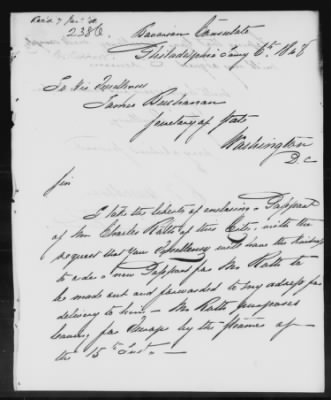 Rec'd 7 Jan. 48
2386
Bavarian Consulate
Philadelphia Jany 6th 1848
To His Excellency
James Buchanan
Secretary of State
Washington
D.C
Sir
I take the liberty of enclosing a Passport
of Mr Charles Rolle of this City, with the
request that Your Excellency will have the kindness
to order a new Passport for Mr Rolle to
be made out and forwarded to my adress for
delivery to him. - Mr Rolle proposes
leaving for Europe by the steamer of
the 15th Inst. -